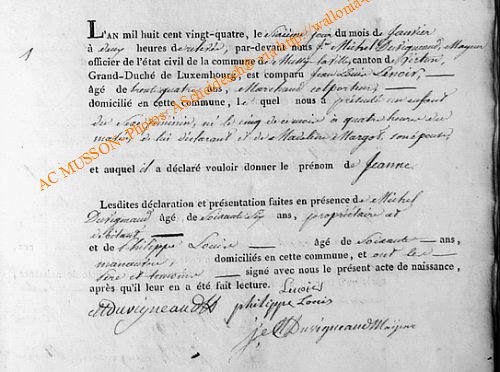 1
L'AN mil huit cent vingt-quatre, le sixième jour du mois de Janvier
à deux heures de relevée, par-devant nous Jn. Michel Duvigneaud, Mayeur
officier de l'état civil de la commune de Mussy-la-Ville, canton de Virton,
Grand-Duché de Luxembourg, est comparu Jean Louis Lenoir,
âgé de trente quatre ans, Marchand colporteur,
domicilié en cette commune, lequel nous a présenté un enfant
du Sexe féminin, né le cinq de ce mois à quatre heures du
matin, de lui déclarant et de Madeleine Margot, son épouse
et auquel il a déclaré vouloir donner le prénom de Jeanne
Lesdites déclaration et présentation faites en présence de Michel
Duvigneaud âgé de Soixante Six ans, propriétaire et
débitant,
et de Philippe Louis âgé de Soixante ans,
manœuvre, domiciliés en cette commune, et ont les
père et témoins signé avec nous le présent acte de naissance,
après qu'il leur en a été fait lecture. Lenoir
Duvigneaud philippe Louis
Duvigneaud Mayeur
AC MUSSON- Photos: AScheidesh@scheides http://wallonia-